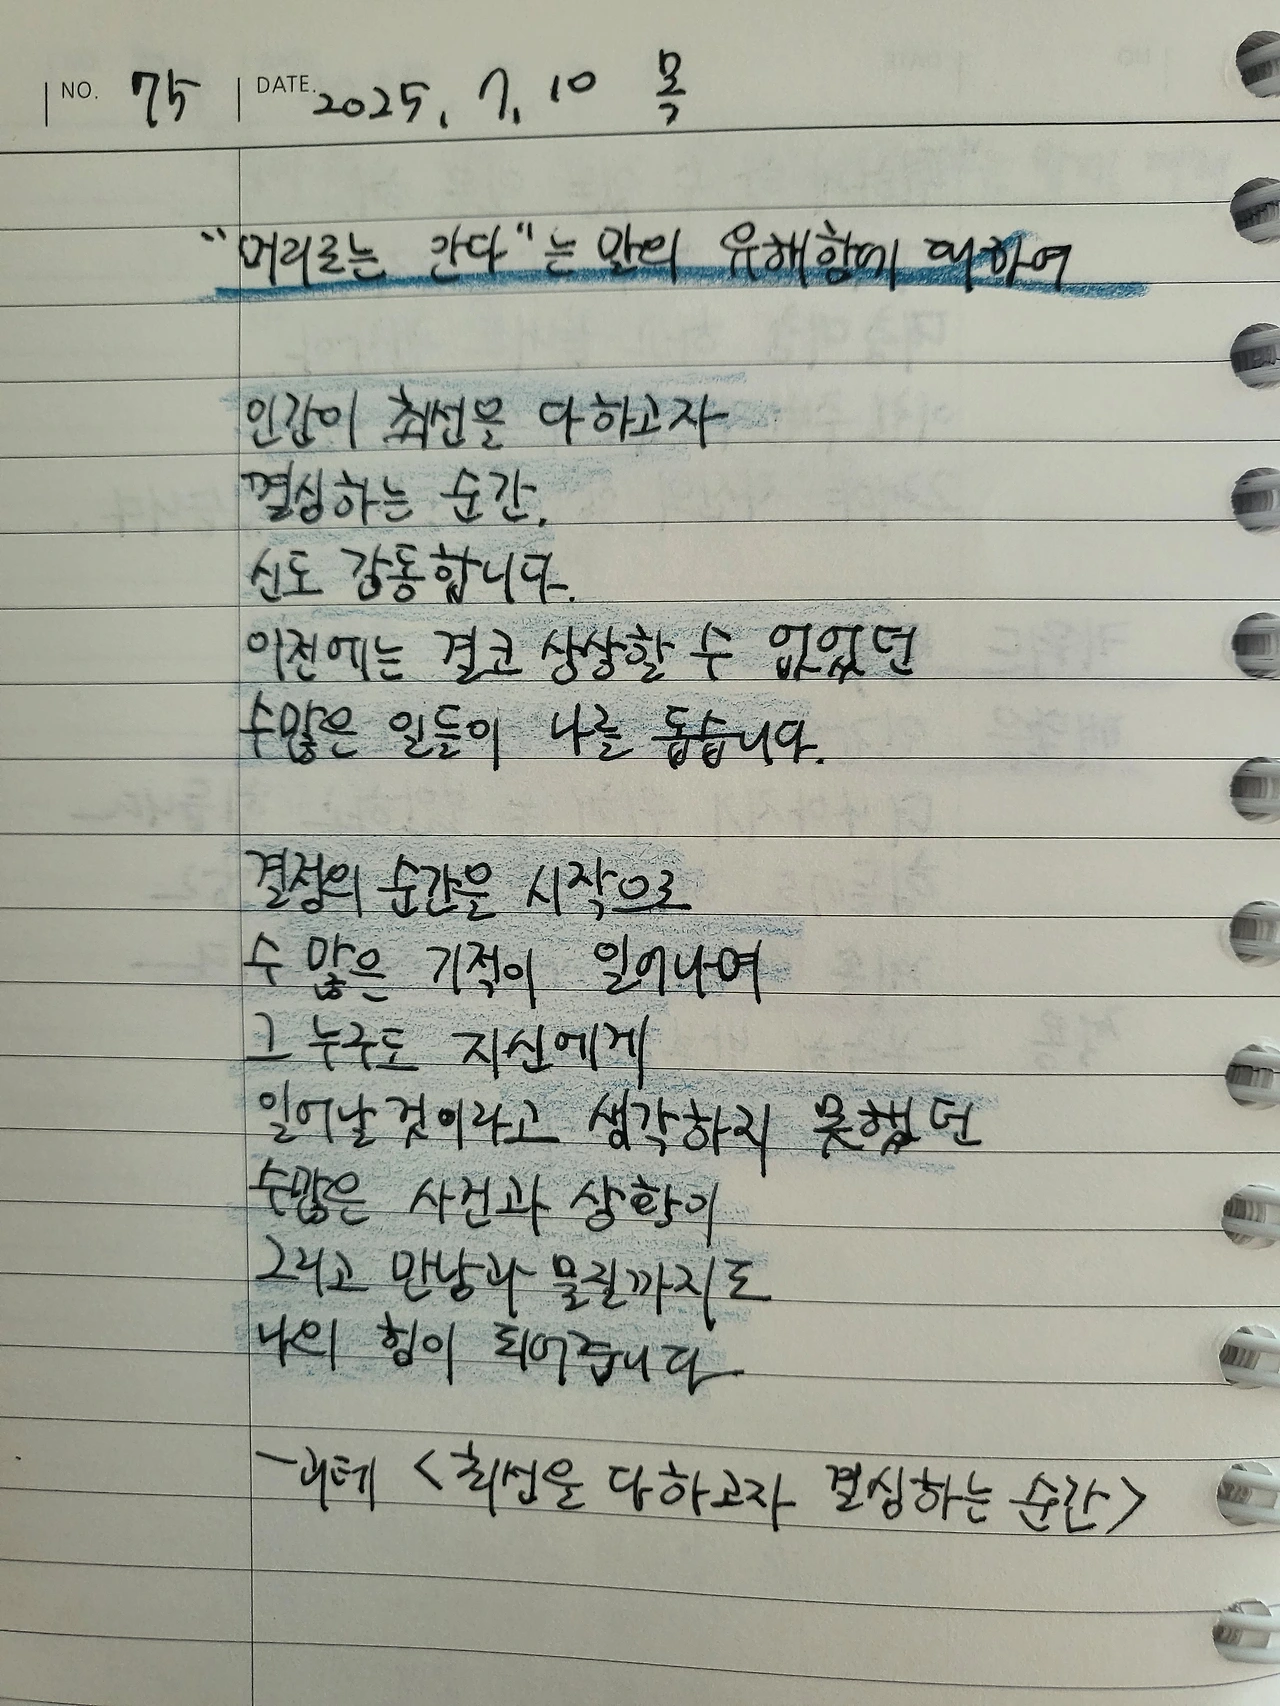 NO. 75 DATE. 2025. 7. 10 목
"머리로는 안다"는 말의 유해함에 대하여
인간이 최선을 다하고자
결심하는 순간,
신도 감동합니다.
이전에는 결코 상상할 수 없었던
수많은 일들이 나를 돕습니다.
결정의 순간을 시작으로
수 많은 기적이 일어나며
그 누구도 자신에게
일어날 것이라고 생각하지 못했던
수많은 사건과 상황이
그리고 만남과 물질까지도
나의 힘이 되어줍니다
- 괴테 <최선을 다하고자 결심하는 순간>